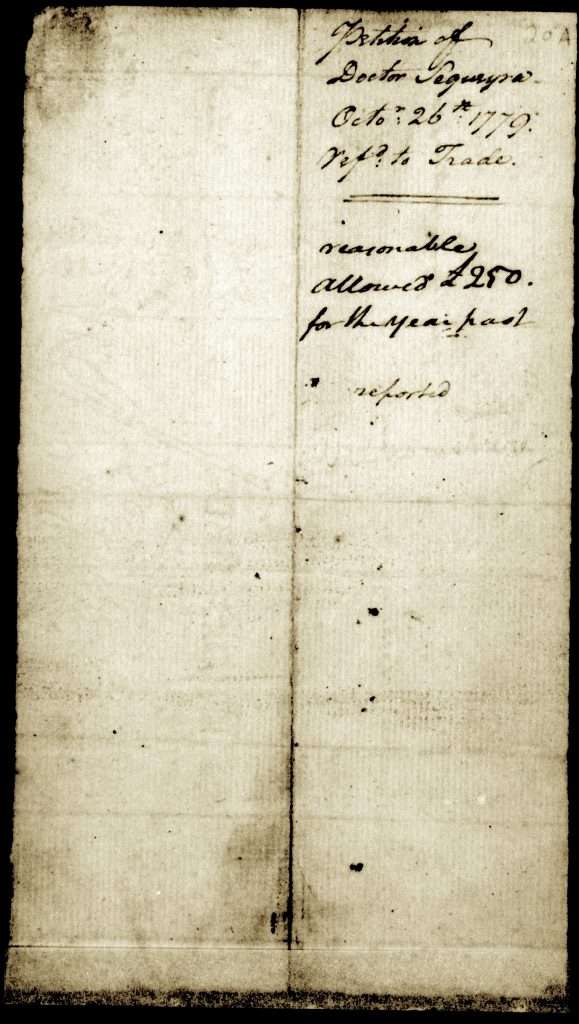 Petition of
Doctor Sequeyra
Octo.r 26th 1779.
Refd. to Trade.
reasonable
Allowed £250.
for the Year past
reported
20A